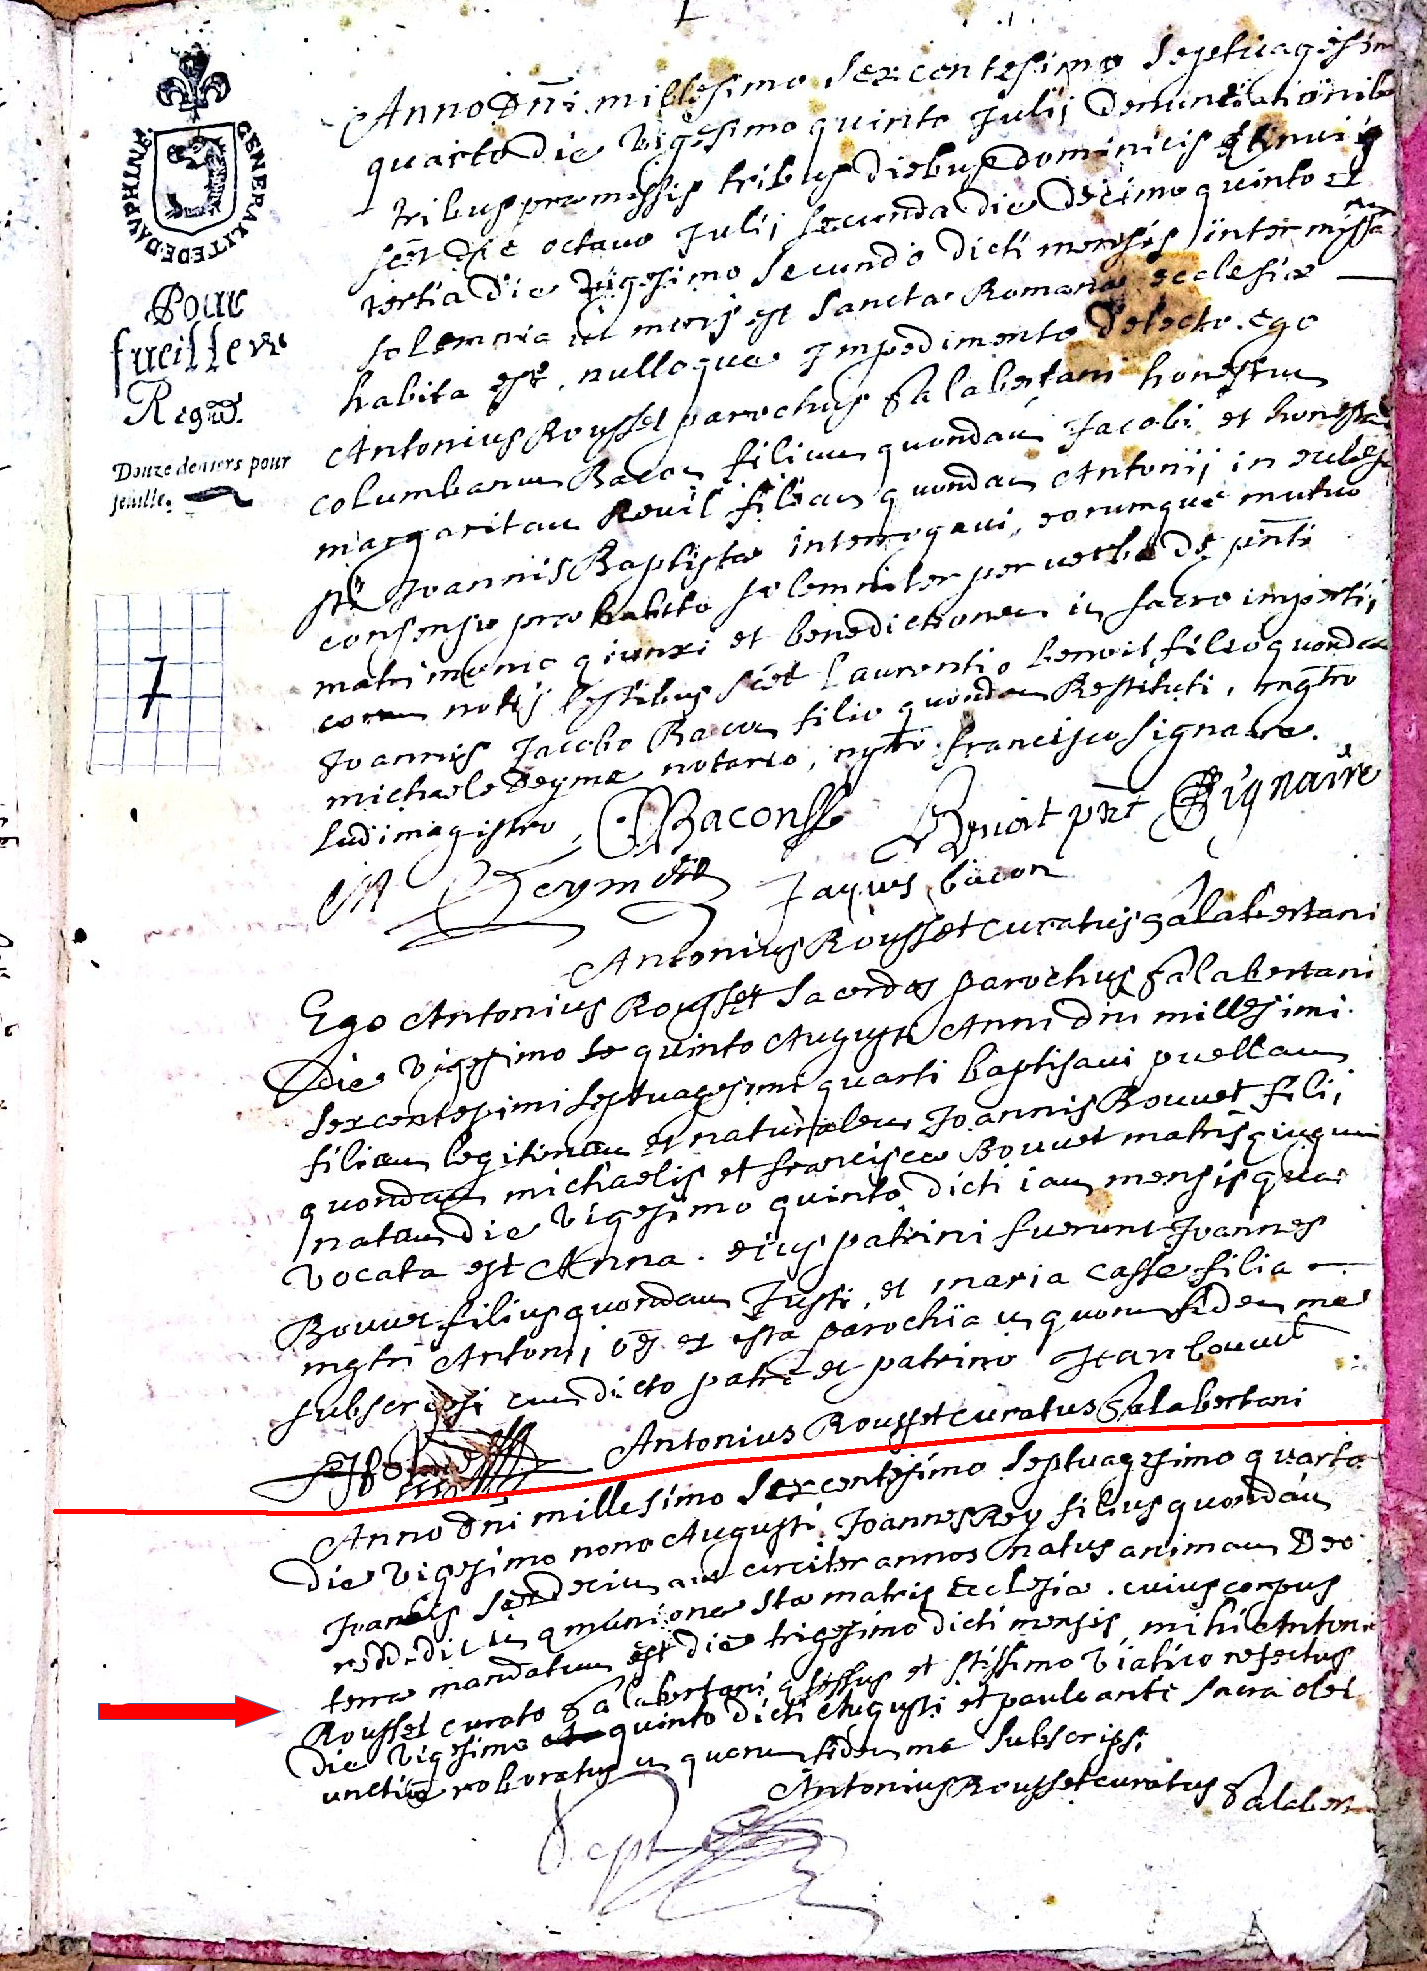 GENERALITE DE DAUPHINE
Pour
fueille de
Regre.
Douze deniers pour
feuille.
7
Anno Dñi millesimo sexcentesimo septuagesimo
quarto die vigesimo quinto Julij denuntiationib
tribus præmissis tribus diebus dominicis
die octavo Julij secunda die decimo quinto et
tertia die vigesimo secundo dicti mensis inter missar
solemnia ut moris est sanctæ Romanæ ecclesiæ
habita est, nulloque impedimento detecto. ego
Antonius Rousset parochus Salabertani honestum
columbanum Bacon filium quondam Jacobi et honestam
margaritam Revil filiam quondam Antonij in eccles
sti Joannis Baptistæ interrogavi, eorumque mutuo
consensu præ habito solemniter per verba de pñti
matrimonio qiunxi et benedictionem in sacro impertij
coram notis testibus scet laurentio benoit filio quondam
Joannis Jacobo Bacon filio quondam Restituti, mgro
michaele Deyme notario, mgro francisco signaire.
ludimagistro,
Bacon Benoit pñt Signaire
M Deyme Jaques bacon
Antonius Rousset curatus Salabertani
Ego Antonius Rousset sacerdos parochus Salabertani
Die vigesimo quinto Augusti Anni dni millesimi
sexcentesimi septuagesimi quarti baptisavi puellam
filiam legitimam et naturalem Joannis Bouvet filij
quondam michaelis et franciscæ Bouvet matris qiugum
natam die vigesimo quinto dicti iam mensis quæ
vocata est Anna. eius patrini fuerunt Joannes
Bouvet filius quondam Justi, et maria casse filia
mgri Antoni, oes ex ista parochia in quorum fidem me
subscripsi cum dicto patre et patrino Jean bouvet
Antonius Rousset curatus Salabertani
Anno dñi millesimo sexcentesimo septuagesimo quarto
die vigesimo nono Augusti Joannes Rey filius quondam
Joannis sexdecim aut circiter annos natus animam Deo
reddidit in qmunione stæ matris Ecclesiæ. cuius corpus
terræ mandatum est die trigesimo dicti mensis, mihi Antonio
Rousset curato Salabertani qfessus et stissimo viatico refectus
die vigesimo quinto dicti Augusti et paulo ante sacra olei
unctione roboratus in quorum fidem me subscripsi
Antonius Rousset curatus Salabert